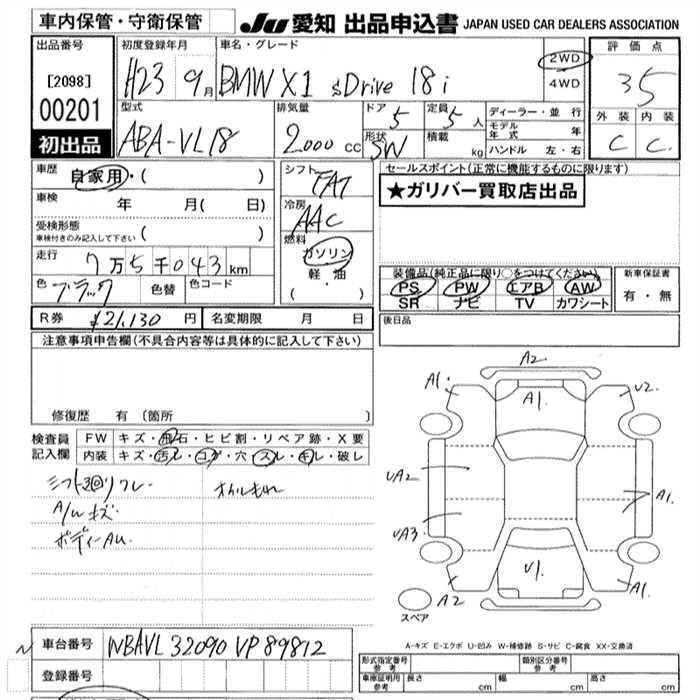 車内保管・守衛保管
JU 愛知 出品申込書 JAPAN USED CAR DEALERS ASSOCIATION
出品番号
[2098]
00201
初出品
初度登録年月
H23 9月
車名・グレード
BMW X1 sDrive 18i
2WD
4WD
評価点
35
外装 内装
C C
型式
ABA-VL18
排気量
2000 cc
ドア
5
定員
5 人
形状
SW
積載
kg
ディーラー・並行
モデル年式 年
ハンドル 左・右
車歴
自家用・( )
車検 年 月( 日)
受検形態
車検付きのみ記入して下さい ( )
走行 7万5千043km
色 ブラック 色替 色コード
シフト
FAT
冷房
AAC
燃料
ガソリン
軽・油
( ・ )
セールスポイント(正常に機能するものに限ります)
★ガリバー買取店出品
装備品(純正品に限り○をつけてください)
PS PW エアB AW
SR ナビ TV カワシート
新車保証書
有・無
R券 ¥21,130 円 名変期限 月 日
後日品
注意事項申告欄(不具合内容等は具体的に記入して下さい)
修復歴 有 〔箇所 〕
検査員記入欄
FW キズ・飛石・ヒビ割・リペア跡・X要
内装 キズ・汚レ・コゲ・穴・スレ・キレ・破レ
シフト廻りスレ
A/Wキズ
ボディーAU
オイルもれ
A2
A1 A1 U2
UA2
A1
UA3
U1
A2 A1
スペア
A-キズ E-エクボ U-凹み W-補修跡 S-サビ C-腐食 XX-交換済
車台番号 NBAVL32090VP89812
登録番号
形式指定番号 参考
類別区分番号 参考
車庫証明用 参考 長さ cm 幅 cm 高さ cm